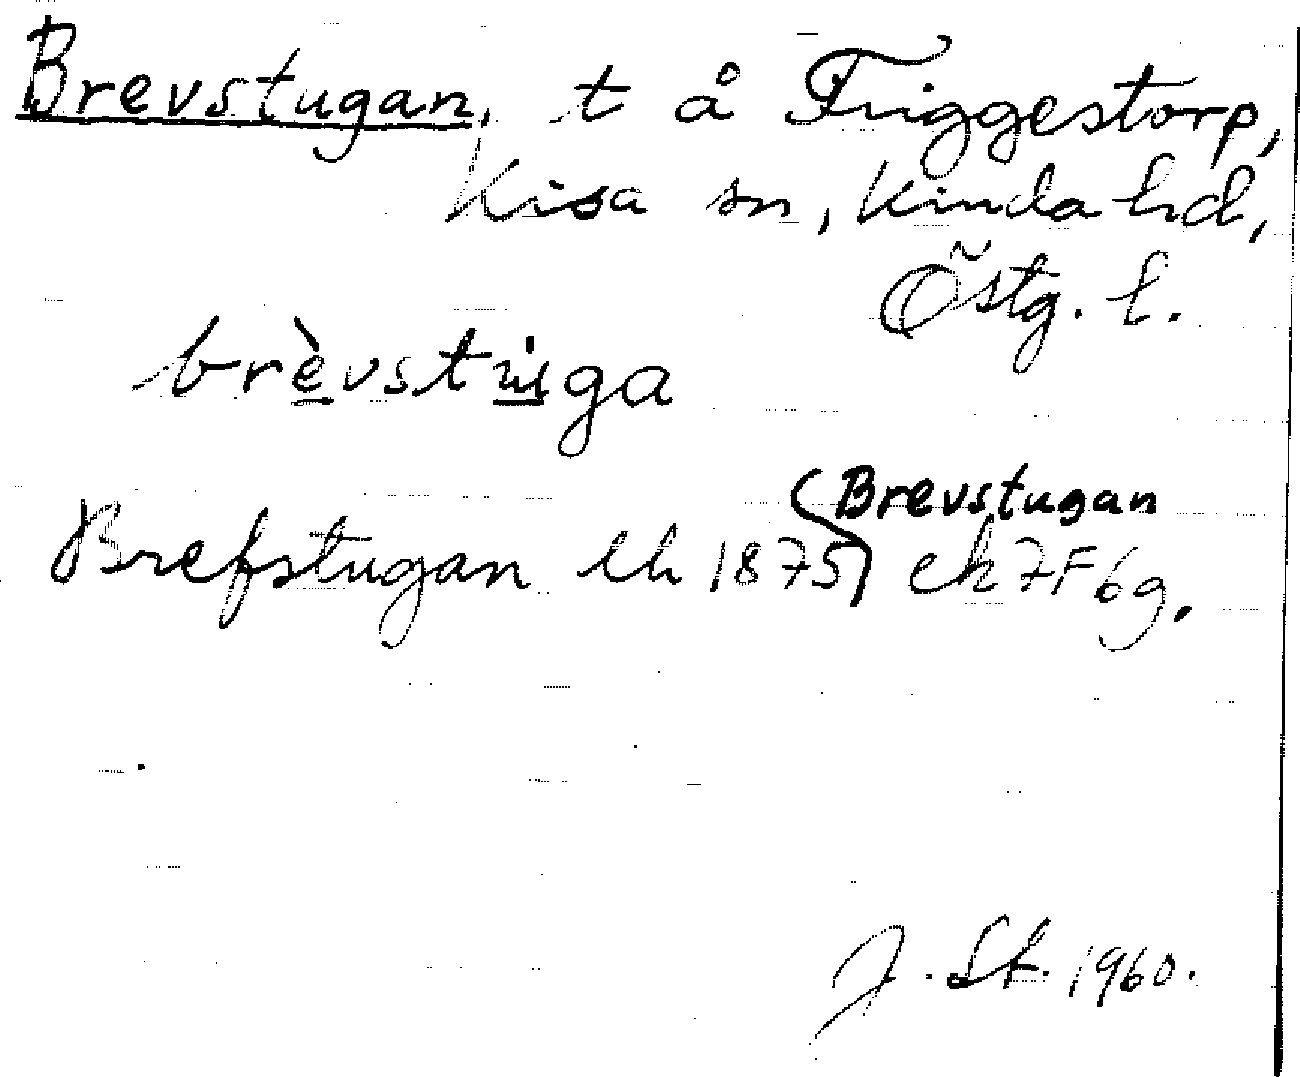 Brevstugan, t å Friggestorp,
Kisa sn, Kinda hd,
Östg. l.
brèvstùga
Brefstugan ek 1875, Brevstugan ek 7F6g.
J. Sk. 1960.